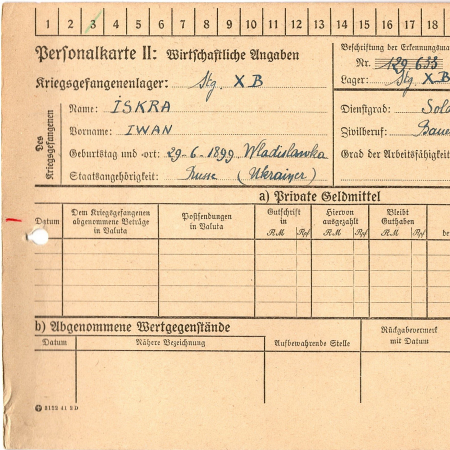 1 2 3 4 5 6 7 8 9 10 11 12 13 14 15 16 17 18
Personalkarte II: Wirtschaftliche Angaben
Beschriftung der Erkennungsma
Nr. 129 633
Kriegsgefangenenlager: Stg. X B
Lager: Stg. X B
Des Kriegsgefangenen
Name: ISKRA
Vorname: IWAN
Geburtstag und -ort: 29-6-1899 Wladislawka
Staatsangehörigkeit: Russe (Ukrainer)
Dienstgrad: Sold
Zivilberuf: Baue
Grad der Arbeitsfähigkeit
a) Private Geldmittel
Datum
Dem Kriegsgefangenen abgenommene Beträge in Valuta
Postsendungen in Valuta
Gutschrift in
RM Rpf
Hiervon ausgezahlt
RM Rpf
Bleibt Guthaben
RM Rpf
be
b) Abgenommene Wertgegenstände
Datum
Nähere Bezeichnung
Aufbewahrende Stelle
Rückgabevermerk mit Datum
3129 41 2D